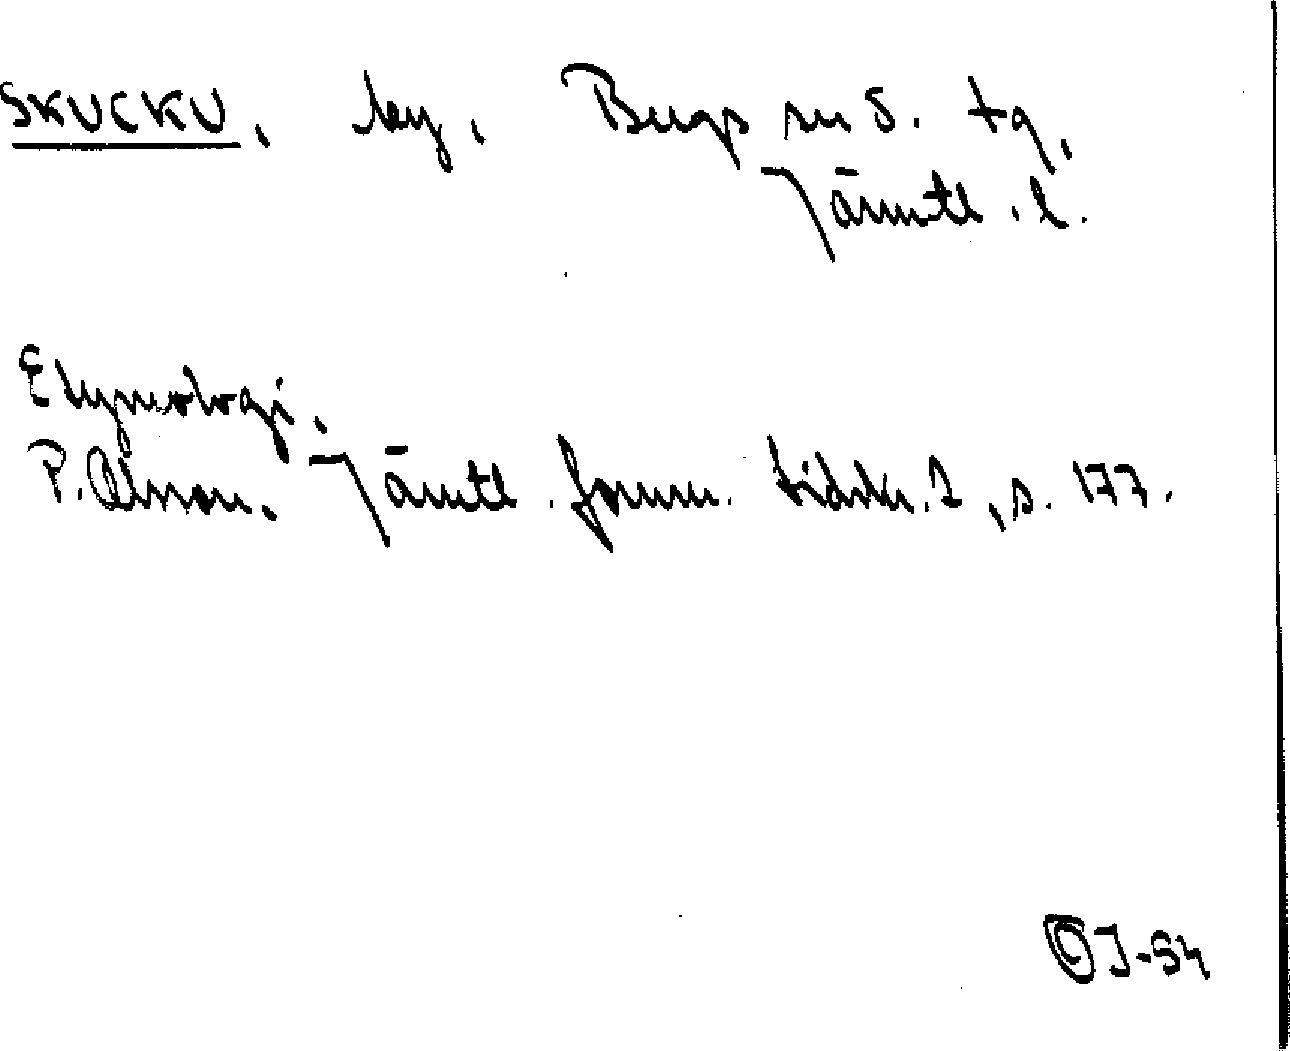 SKUCKU, by, Bergs sn o. tg,
Jämtl. l.
Etymologi.
P. Olsson. Jämtl. fornm. tidskr. 1, s. 177.
J-54